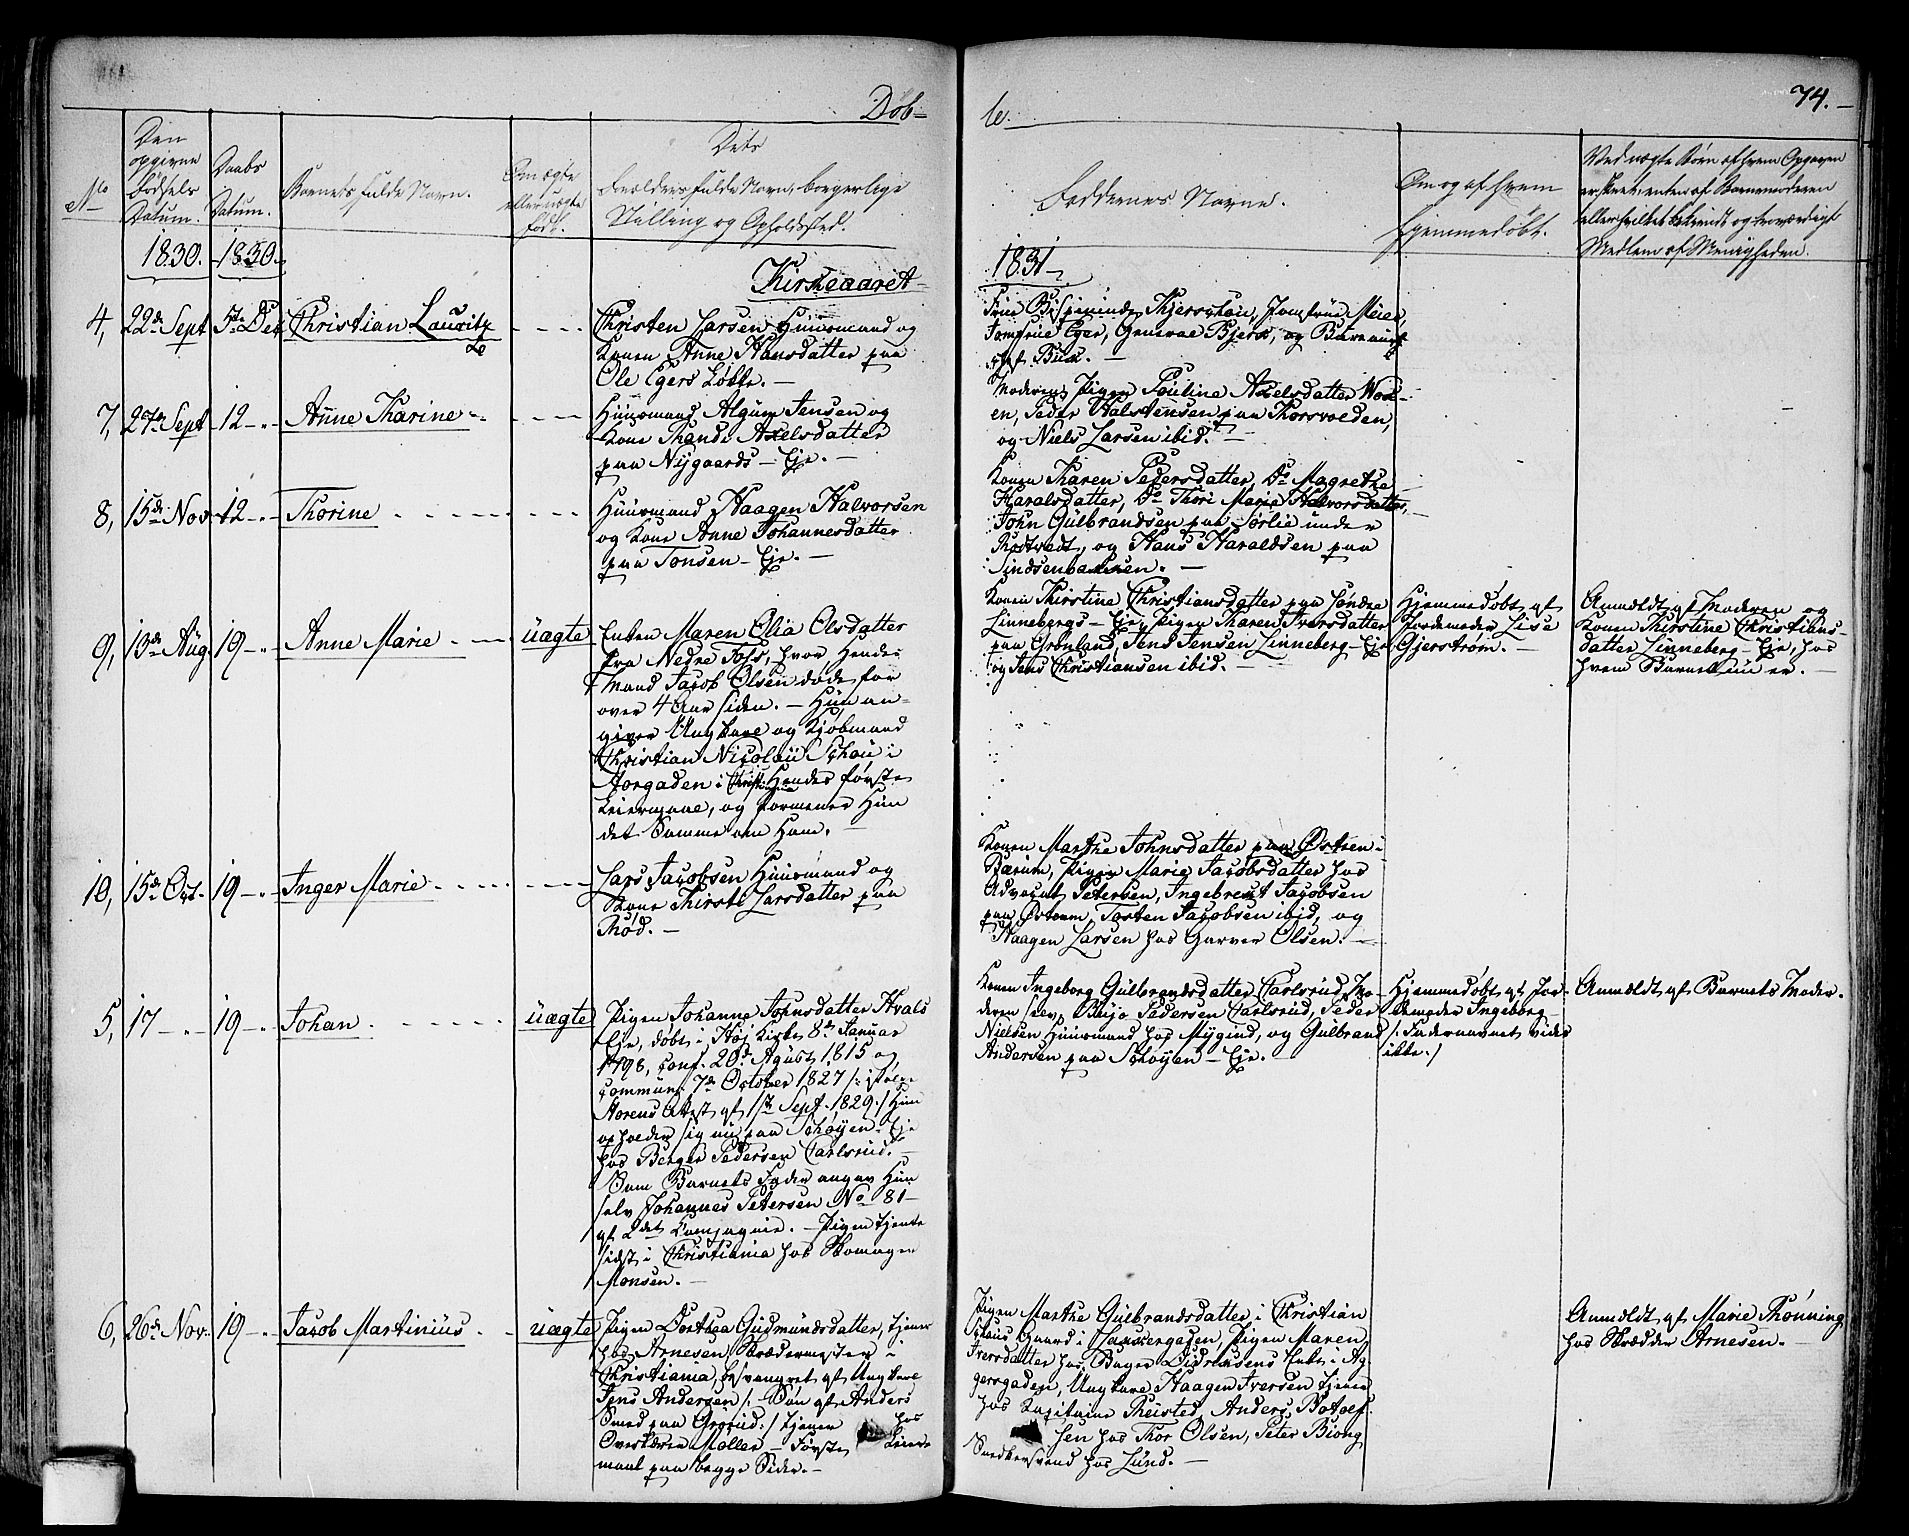 Døb-
te.
74.-
No
Den
opgivne
Fødsels
Datum.
Daabs
Datum.
Barnets fulde Navn.
Om ægte
eller uægte
født.
Dets
Forældres fulde Navn, borgerlige
Stilling og Opholdssted.
Faddernes Navne.
Om og af hvem
hjemmedøbt.
Ved uægte Børn af hvem Opgaven
er skeet, enten af Barnemoderen
eller hvilket bekiendt og troværdigt
Medlem af Menigheden.
1830. 1830.
Kirkeaaret
1831
4, 22de Sept 5te Dec Christian Lauritz
Christen Larsen Huusmand og
Konen Anne Hansdatter paa
Ole Egers Løkke. -
Jomfrue Eger, General Bjerk, og
7, 27de Sept 12 Anne Karine
Huusmand Jensen og
Kone Axelsdatter
paa Nygaards - Eje. -
Moderen, Pigen Pauline Axelsdatter
en, Peder Halstensen paa Thorsvolden,
og Niels Larsen ibid. -
8, 15de Nov 12 Thorine
Huusmand Haagen Halvorsen
og Kone Anne Johannesdatter
paa Tonsen - Eje. -
Konen Karen Pedersdatter, Do Magrethe
Haralsdatter, Do Thori Marie Halvorsdatter,
John Gulbrandsen paa Sørlie under
Rostvedt, og Hans Haraldsen paa
Sindsenbakken. -
9, 13de Aug 19 Anne Marie uægte
Enken Maren Olia Olsdatter
fra Nedre Foss, hvor Hendes
Mand Jacob Olsen døde for
over 4 Aar siden. - Hun an-
giver Ungkarl og Kjøbmand
Christian Nicolai Schou i
Storgaden i Christiania Hendes første
Leiermaal, og formener Hun
det Samme om Ham. -
Konen Kirstine Christiansdatter paa Søndre
Linnebergs - Eje, Pigen Karen Iversdatter
paa Grønland, Jens Jensen Linneberg - Eje
og Jens Christiansen ibid.
Hjemmedøbt af
Jordemoder Lise
Gjerstrøm. -
Anmeldt af Moderen og
Konen Kirstine Christians-
datter Linneberg - Eje, hos
hvem Barnet nu er. -
10, 15de Oct. 19 Inger Marie
Lars Jacobsen Huusmand og
Kone Kirsti Larsdatter paa
Rød. -
Konen Marthe Johnsdatter paa Østern i
Bærum, Pigen Marie Jacobsdatter hos
Advocat Petersen, Ingebregt Jacobsen
paa Østern, Torsten Jacobsen ibid, og
Haagen Larsen hos Garver Olsen. -
5, 17 19 Johan uægte
Pigen Johanne Johnsdatter Hvals
Eje, døbt i Høj Kirke 8de Januar
1798, conf. 20de Agust 1815 og
commun: 7de October 1827 /: ifølge
Storens Attest af 1ste Sept. 1829 :/ Hun
opholder sig nu paa Schøyen - Eje
hos Berger Pedersen Carlsrud. -
Som Barnets Fader angav Hun
selv Johannes Petersen No 81
af 2det Compagnie. - Pigen tjente
sidst i Christiania hos Skomager
Monsen. -
Konen Ingeborg Gulbrandsdatter Carlsrud, Mo-
deren selv, Pedersen Carlsrud, Peder
Nielsen Huusmand hos Mygind, og Gulbrand
Andersen paa Schøyen - Eje. -
Hjemmedøbt af Jor-
demoder Ingeborg
/: Fadernavnet vides
ikke. :/
Anmeldt af Barnets Moder.
6, 26de Nov. 19 Jacob Martinius uægte
Pigen Dorthea Gudmundsdatter, tjener
hos Arnesen Skrædermester i
Christiania, besvangret af Ungkarl
Jens Andersen /: Søn af Anders
Smed paa Grorud :/ tjener hos
Møller - Første Leier-
maal paa begge Sider. -
Pigen Marthe Gulbrandsdatter i Christian
Gaard i Pigen Maren
Iversdatter hos Bager Didriksens Enke i Ag-
gersgaden, Ungkarl Haagen Iversen tjener
hos Kapitaine Anders Botolf-
sen hos Thor Olsen, Peter Biong
Snedkersvend hos Lund. -
Anmeldt af Marie Rønning
hos Skrædder Arnesen. -